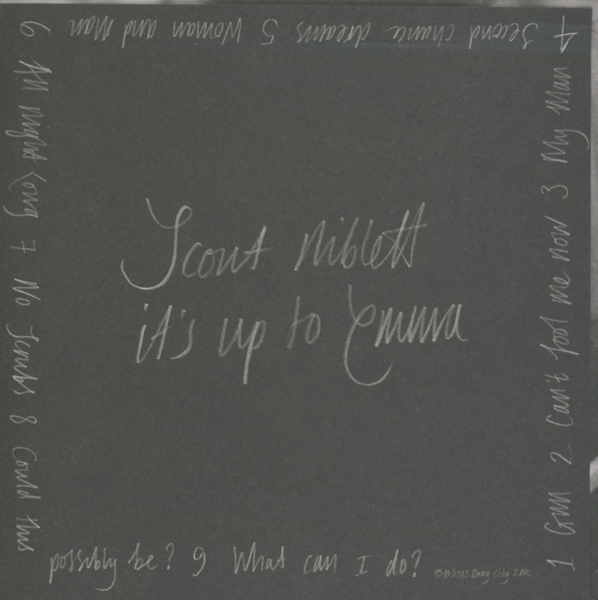 Scout Niblett
it's up to Emma
1 Gun 2 Can't fool me now 3 My Man
4 Second chance dreams 5 Woman and Man
6 All Night Long 7 No Scrubs 8 Could this
possibly be? 9 What can I do?
©℗2013 Drag City INC.